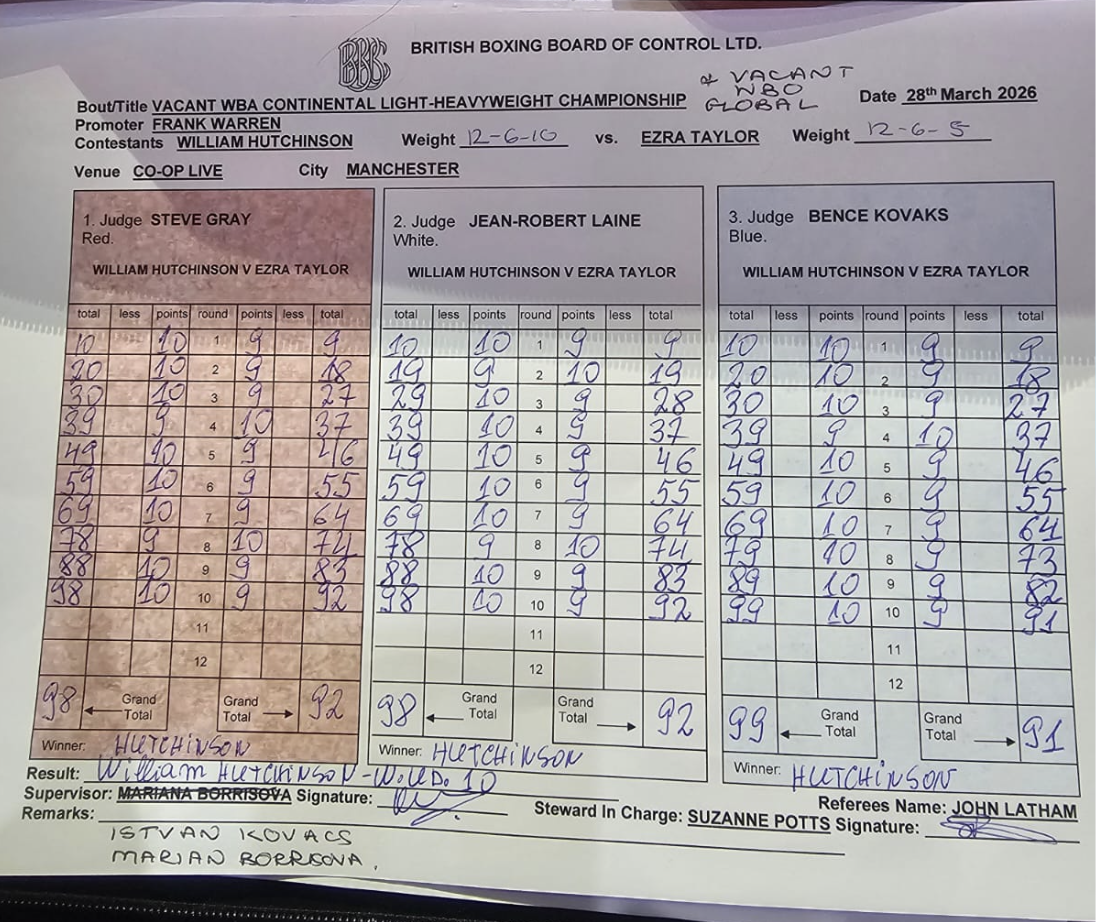 BRITISH BOXING BOARD OF CONTROL LTD.
Bout/Title VACANT WBA CONTINENTAL LIGHT-HEAVYWEIGHT CHAMPIONSHIP & VACANT WBO GLOBAL Date 28th March 2026
Promoter FRANK WARREN
Contestants WILLIAM HUTCHINSON Weight 12-6-10 vs. EZRA TAYLOR Weight 12-6-5
Venue CO-OP LIVE City MANCHESTER
1. Judge STEVE GRAY
Red.
WILLIAM HUTCHINSON V EZRA TAYLOR
total less points round points less total
10 10 1 9 9
20 10 2 9 18
30 10 3 9 27
39 9 4 10 37
49 10 5 9 46
59 10 6 9 55
69 10 7 9 64
78 9 8 10 74
88 10 9 9 83
98 10 10 9 92
11
12
98 Grand Total Grand Total 92
Winner: HUTCHINSON
2. Judge JEAN-ROBERT LAINE
White.
WILLIAM HUTCHINSON V EZRA TAYLOR
total less points round points less total
10 10 1 9 9
19 9 2 10 19
29 10 3 9 28
39 10 4 9 37
49 10 5 9 46
59 10 6 9 55
69 10 7 9 64
78 9 8 10 74
88 10 9 9 83
98 10 10 9 92
11
12
98 Grand Total Grand Total 92
Winner: HUTCHINSON
3. Judge BENCE KOVAKS
Blue.
WILLIAM HUTCHINSON V EZRA TAYLOR
total less points round points less total
10 10 1 9 9
20 10 2 9 18
30 10 3 9 27
39 9 4 10 37
49 10 5 9 46
59 10 6 9 55
69 10 7 9 64
79 10 8 9 73
89 10 9 9 82
99 10 10 9 91
11
12
99 Grand Total Grand Total 91
Winner: HUTCHINSON
Result: William HUTCHINSON - W.U.D. 10
Supervisor: MARIANA BORRISOVA Signature: Steward In Charge: SUZANNE POTTS Referees Name: JOHN LATHAM
Signature:
Remarks:
ISTVAN KOVACS
MARIAN BORRISOVA.